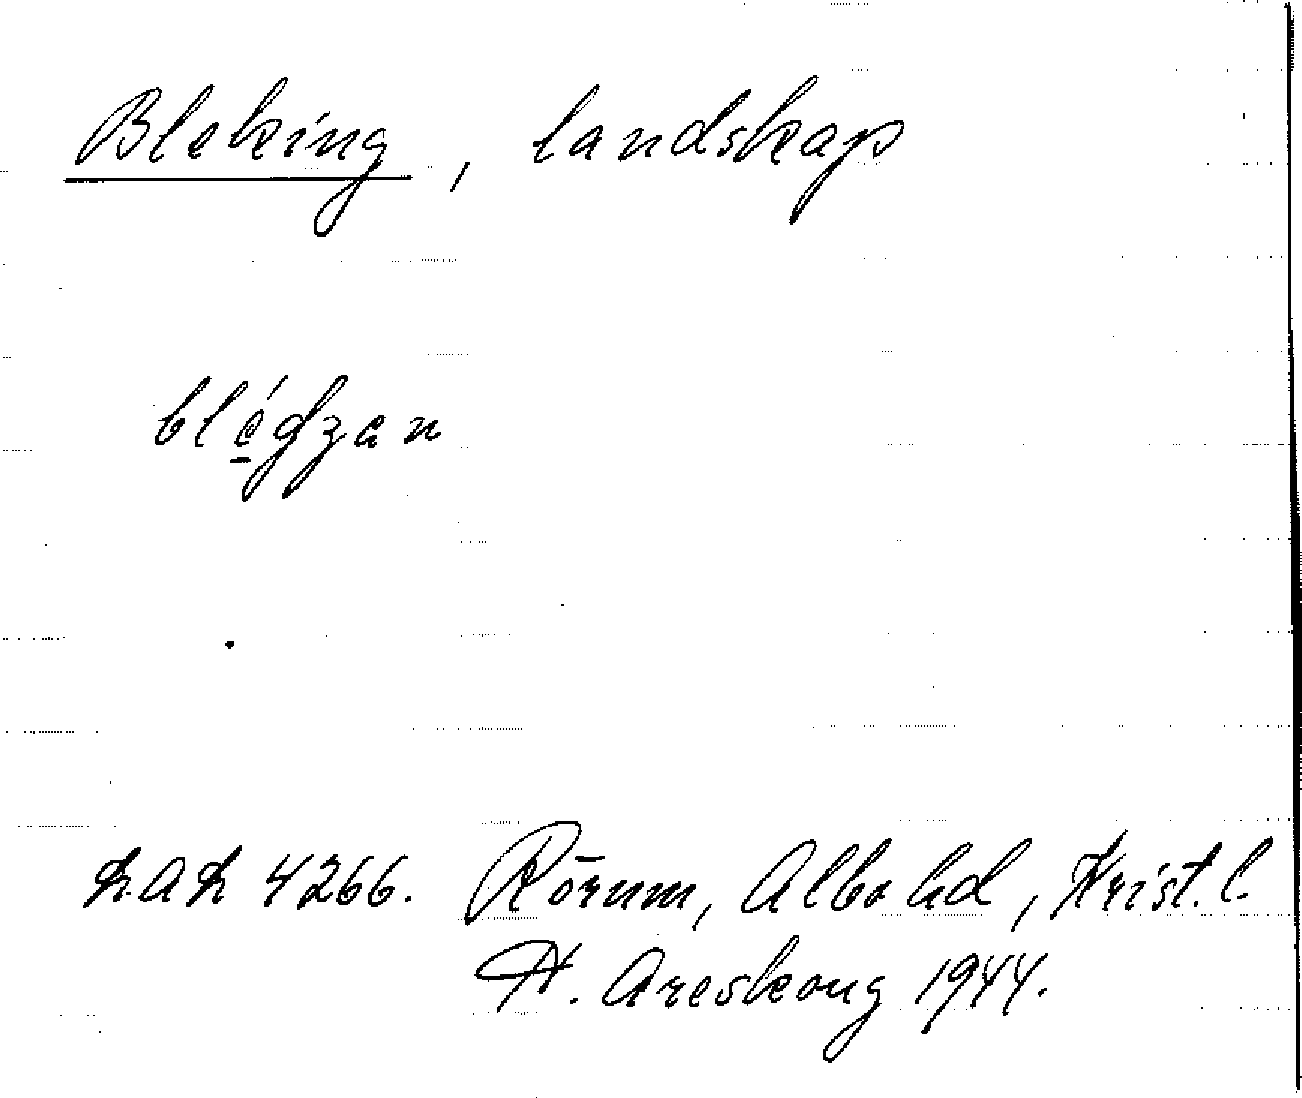 Bleking, landskap
blé̱gʒan
LAL 4266. Rörum, Albo hd, Krist. l.
H. Areskoug 1944.